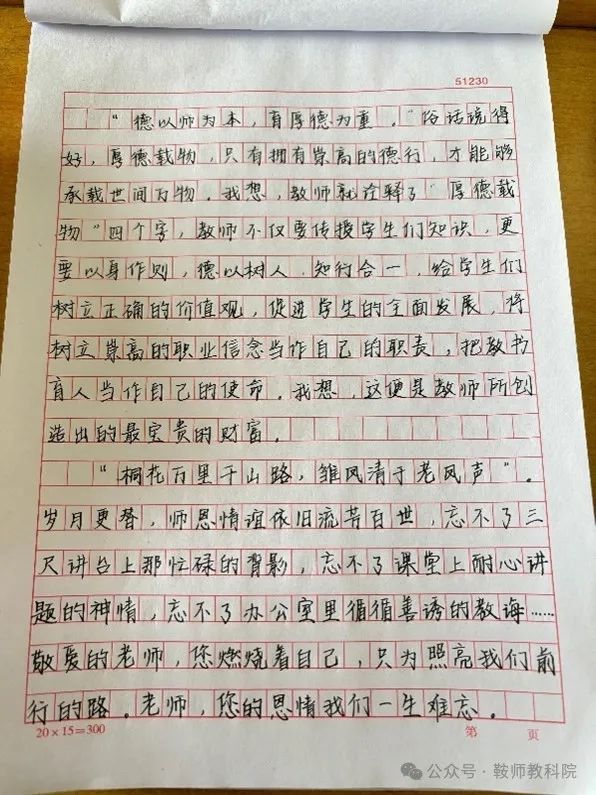 51230
“德以师为本，育厚德为重。”俗话说得
好，厚德载物，只有拥有崇高的德行，才能够
承载世间万物。我想，教师就诠释了“厚德载
物”四个字，教师不仅要传授学生们知识，更
要以身作则，德以树人，知行合一，给学生们
树立正确的价值观，促进学生的全面发展，将
树立崇高的职业信念当作自己的职责，把教书
育人当作自己的使命。我想，这便是教师所创
造出的最宝贵的财富。
“桐花万里千山路，雏凤清于老凤声”。
岁月更替，师恩情谊依旧流芳百世，忘不了三
尺讲台上那忙碌的背影，忘不了课堂上耐心讲
题的神情，忘不了办公室里循循善诱的教诲……
敬爱的老师，您燃烧着自己，只为照亮我们前
行的路。老师，您的恩情我们一生难忘。
20×15=300 第 页
公众号·鞍师教科院